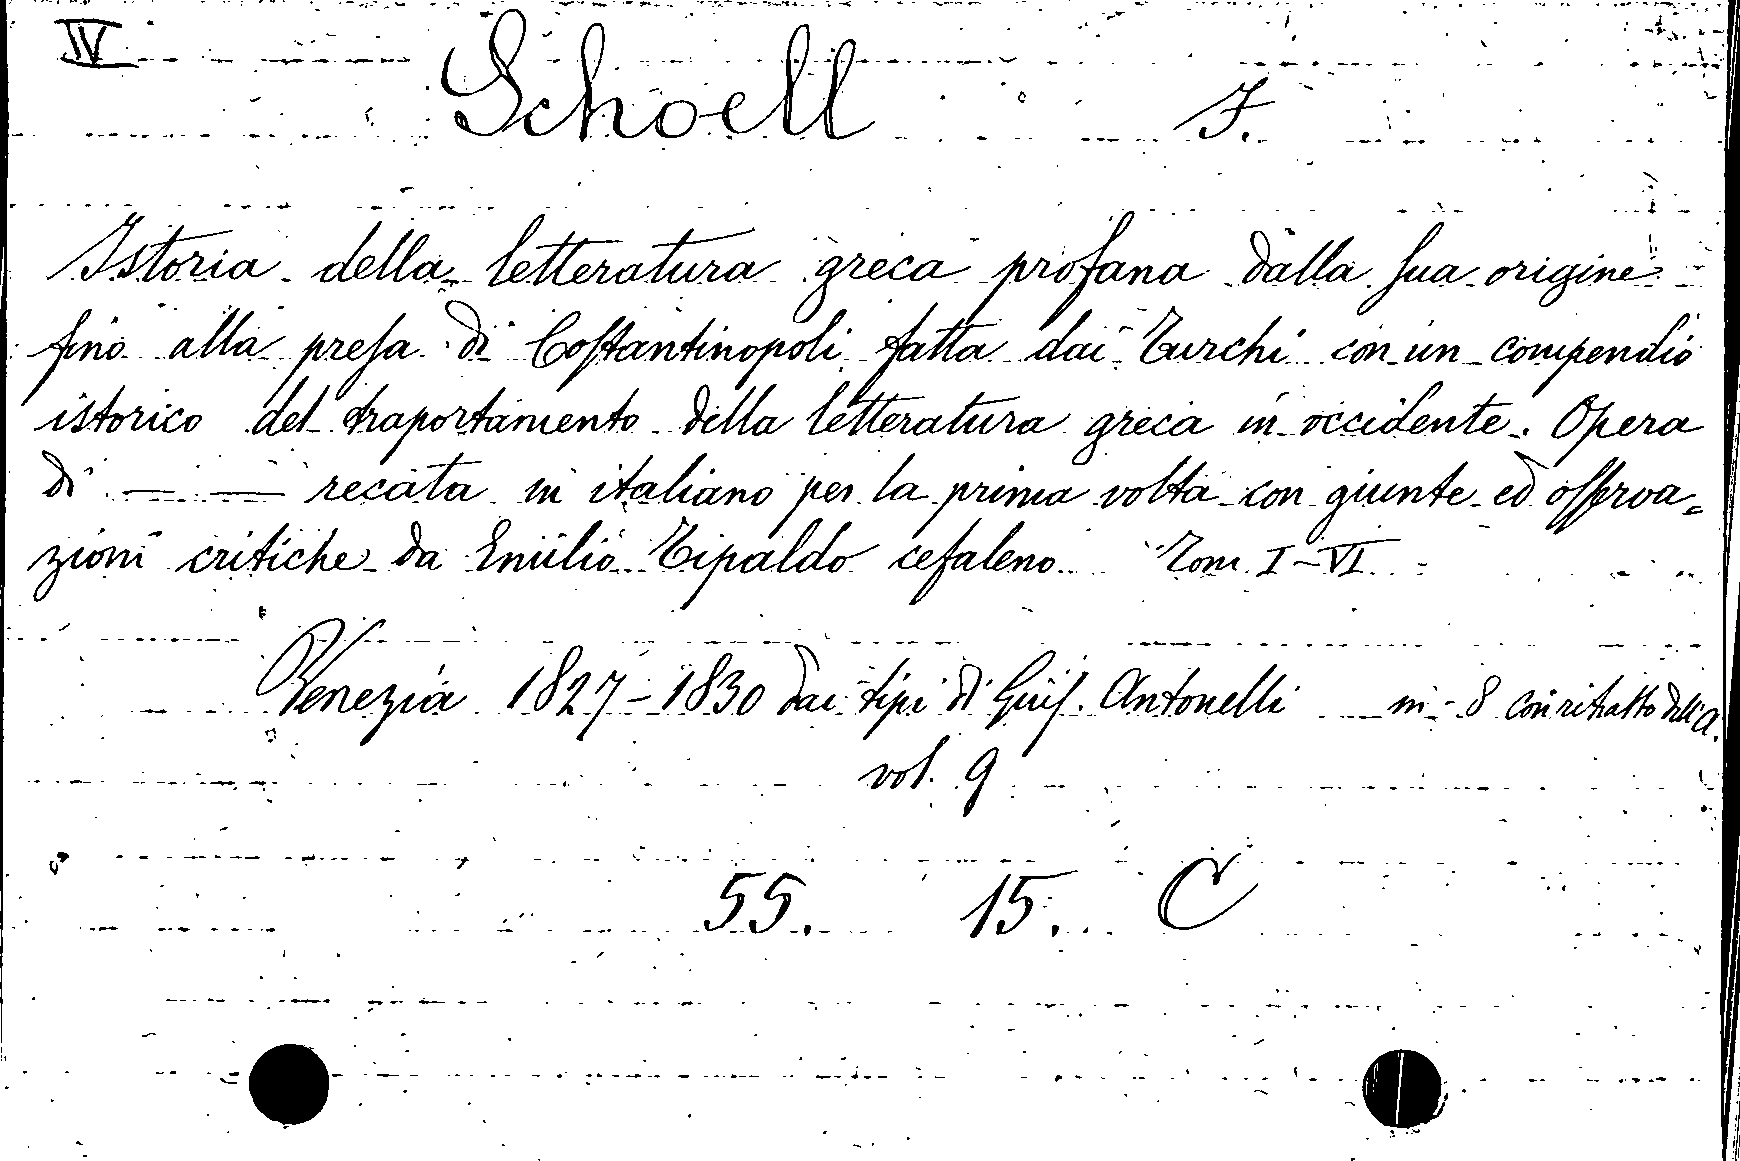 IV
Schoell F.
Istoria della letteratura greca profana dalla sua origine
fino alla presa di Costantinopoli fatta dai Turchi con un compendio
istorico del traportamento della letteratura greca in occidente. Opera
di — — recata in italiano per la prima volta con giunte ed osserva=
zioni critiche da Emilio Tipaldo cefaleno Tom. I-VI
Venezia 1827-1830 dai tipi di Gius. Antonelli in-8 con ritratto dell'A.
vol. 9
55. 15. C